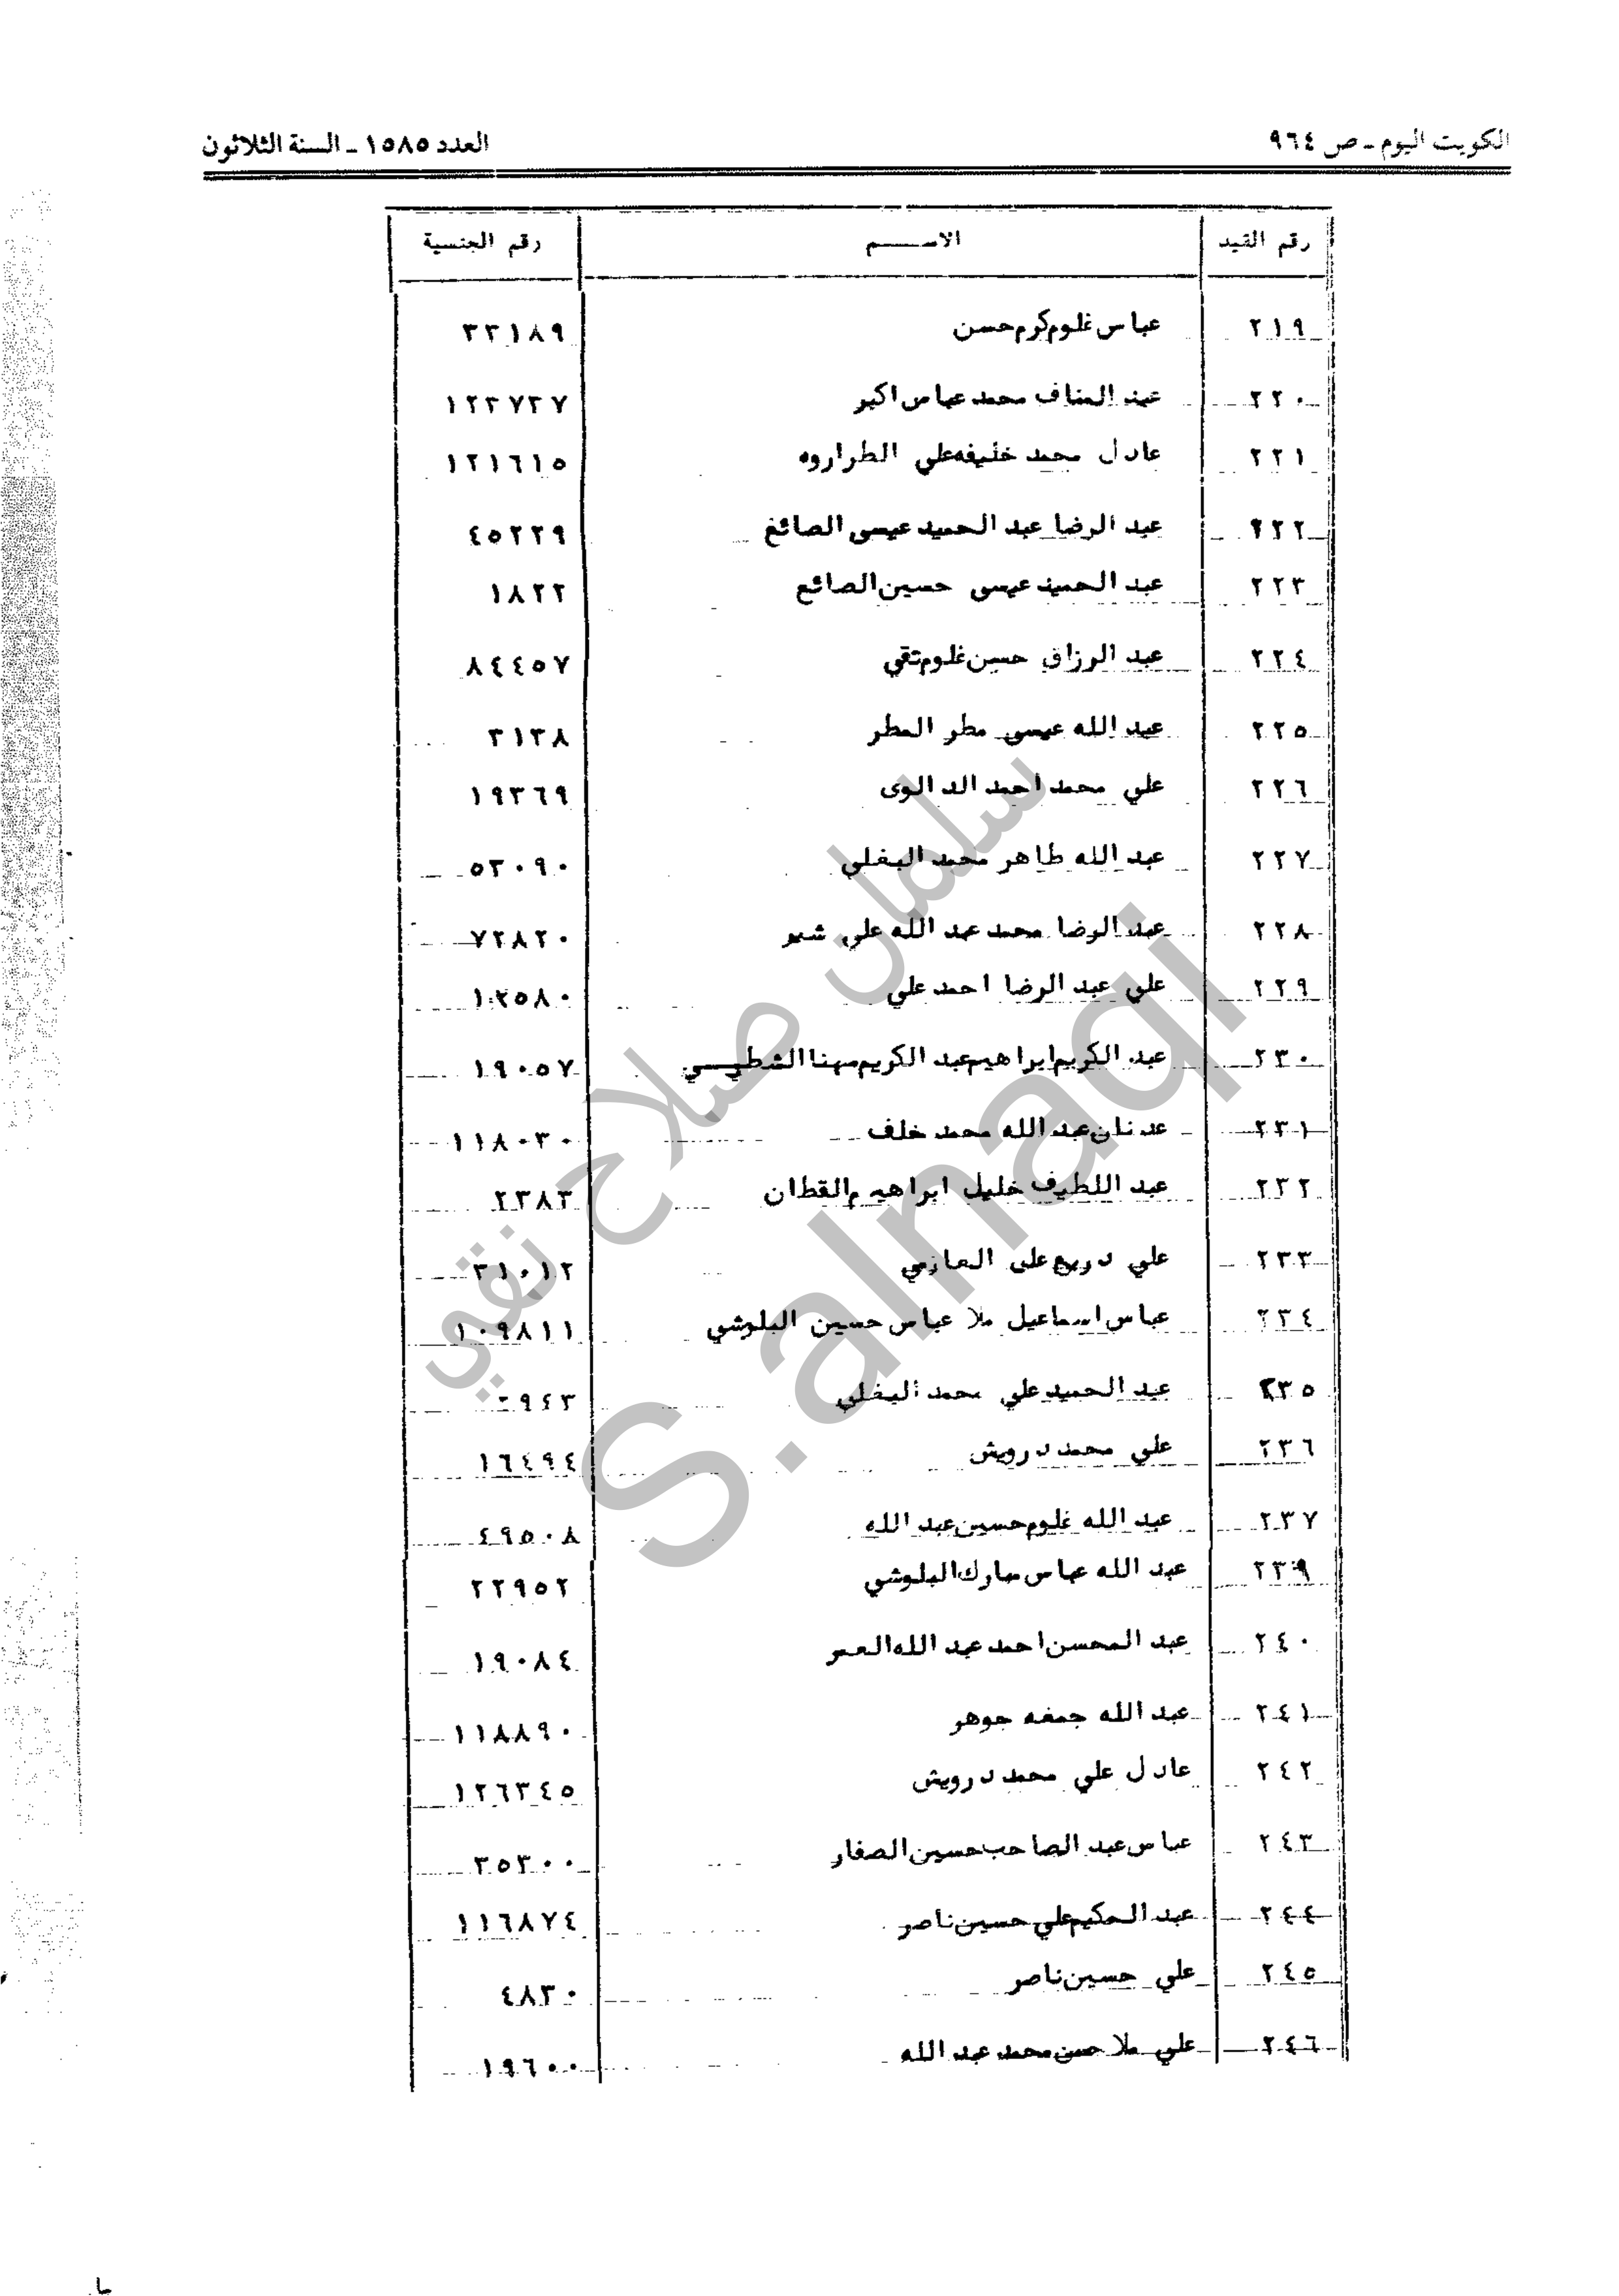 الكويت اليوم ـ ص ٩٦٤
العدد ١٥٨٥ ـ السنة الثلاثون
رقم القيد الاســـم رقم الجنسية
٢١٩ عباس غلوم كرم حسن ٣٣١٨٩
٢٢٠ عبد المناف محمد عباس اكبر ١٢٣٧٢٧
٢٢١ عادل محمد خليفه علي الطراروه ١٢١٦١٥
٢٢٢ عبد الرضا عبد الحميد عيسى الصائغ ٤٥٢٢٩
٢٢٣ عبد الحميد عيسى حسين الصائع ١٨٢٢
٢٢٤ عبد الرزاق حسين غلوم تقي ٨٤٤٥٧
٢٢٥ عبد الله عيسى مطر المطر ٣١٣٨
٢٢٦ علي محمد احمد الدالوى ١٩٣٦٩
٢٢٧ عبد الله طاهر محمد البغلي ٥٣٠٩٠
٢٢٨ عبد الرضا محمد عبد الله علي شبر ٧٢٨٢٠
٢٢٩ علي عبد الرضا احمد علي ١٢٥٨٠
٢٣٠ عبد الكريم ابراهيم عبد الكريم مهنا الشطيــي ١٩٠٥٧
٢٣١ عدنان عبد الله محمد خلف ١١٨٠٣٠
٢٣٢ عبد اللطيف خليل ابراهيم القطان ٢٣٨٣
٢٣٣ علي دريع على العازمي ٣١٠١٢
٢٣٤ عباس اسماعيل ملا عباس حسين البلوشي ١٠٩٨١١
٢٣٥ عبد الحميد علي محمد البغلي ٩٤٣
٢٣٦ علي محمد درويش ١٦٤٩٤
٢٣٧ عبد الله غلوم حسين عبد الله ٤٩٥٠٨
٢٣٩ عبد الله عباس مبارك البلوشي ٢٢٩٥٢
٢٤٠ عبد المحسن احمد عبد الله العمر ١٩٠٨٤
٢٤١ عبد الله جمعه جوهر ١١٨٨٩٠
٢٤٢ عادل علي محمد درويش ١٢٦٣٤٥
٢٤٣ عباس عبد الصاحب حسين الصفار ٣٥٣٠٠
٢٤٤ عبد الحكيم علي حسين ناصر ١١٦٨٧٤
٢٤٥ علي حسين ناصر ٤٨٣٠
٢٤٦ علي ملا حسن محمد عبد الله ١٩٦٠٠
سلمان صلاح نقي
S.alnaqi